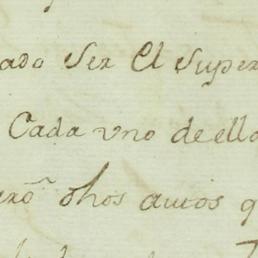 ado Ser El Super
Cada vno de ello
xrō dhos autos q